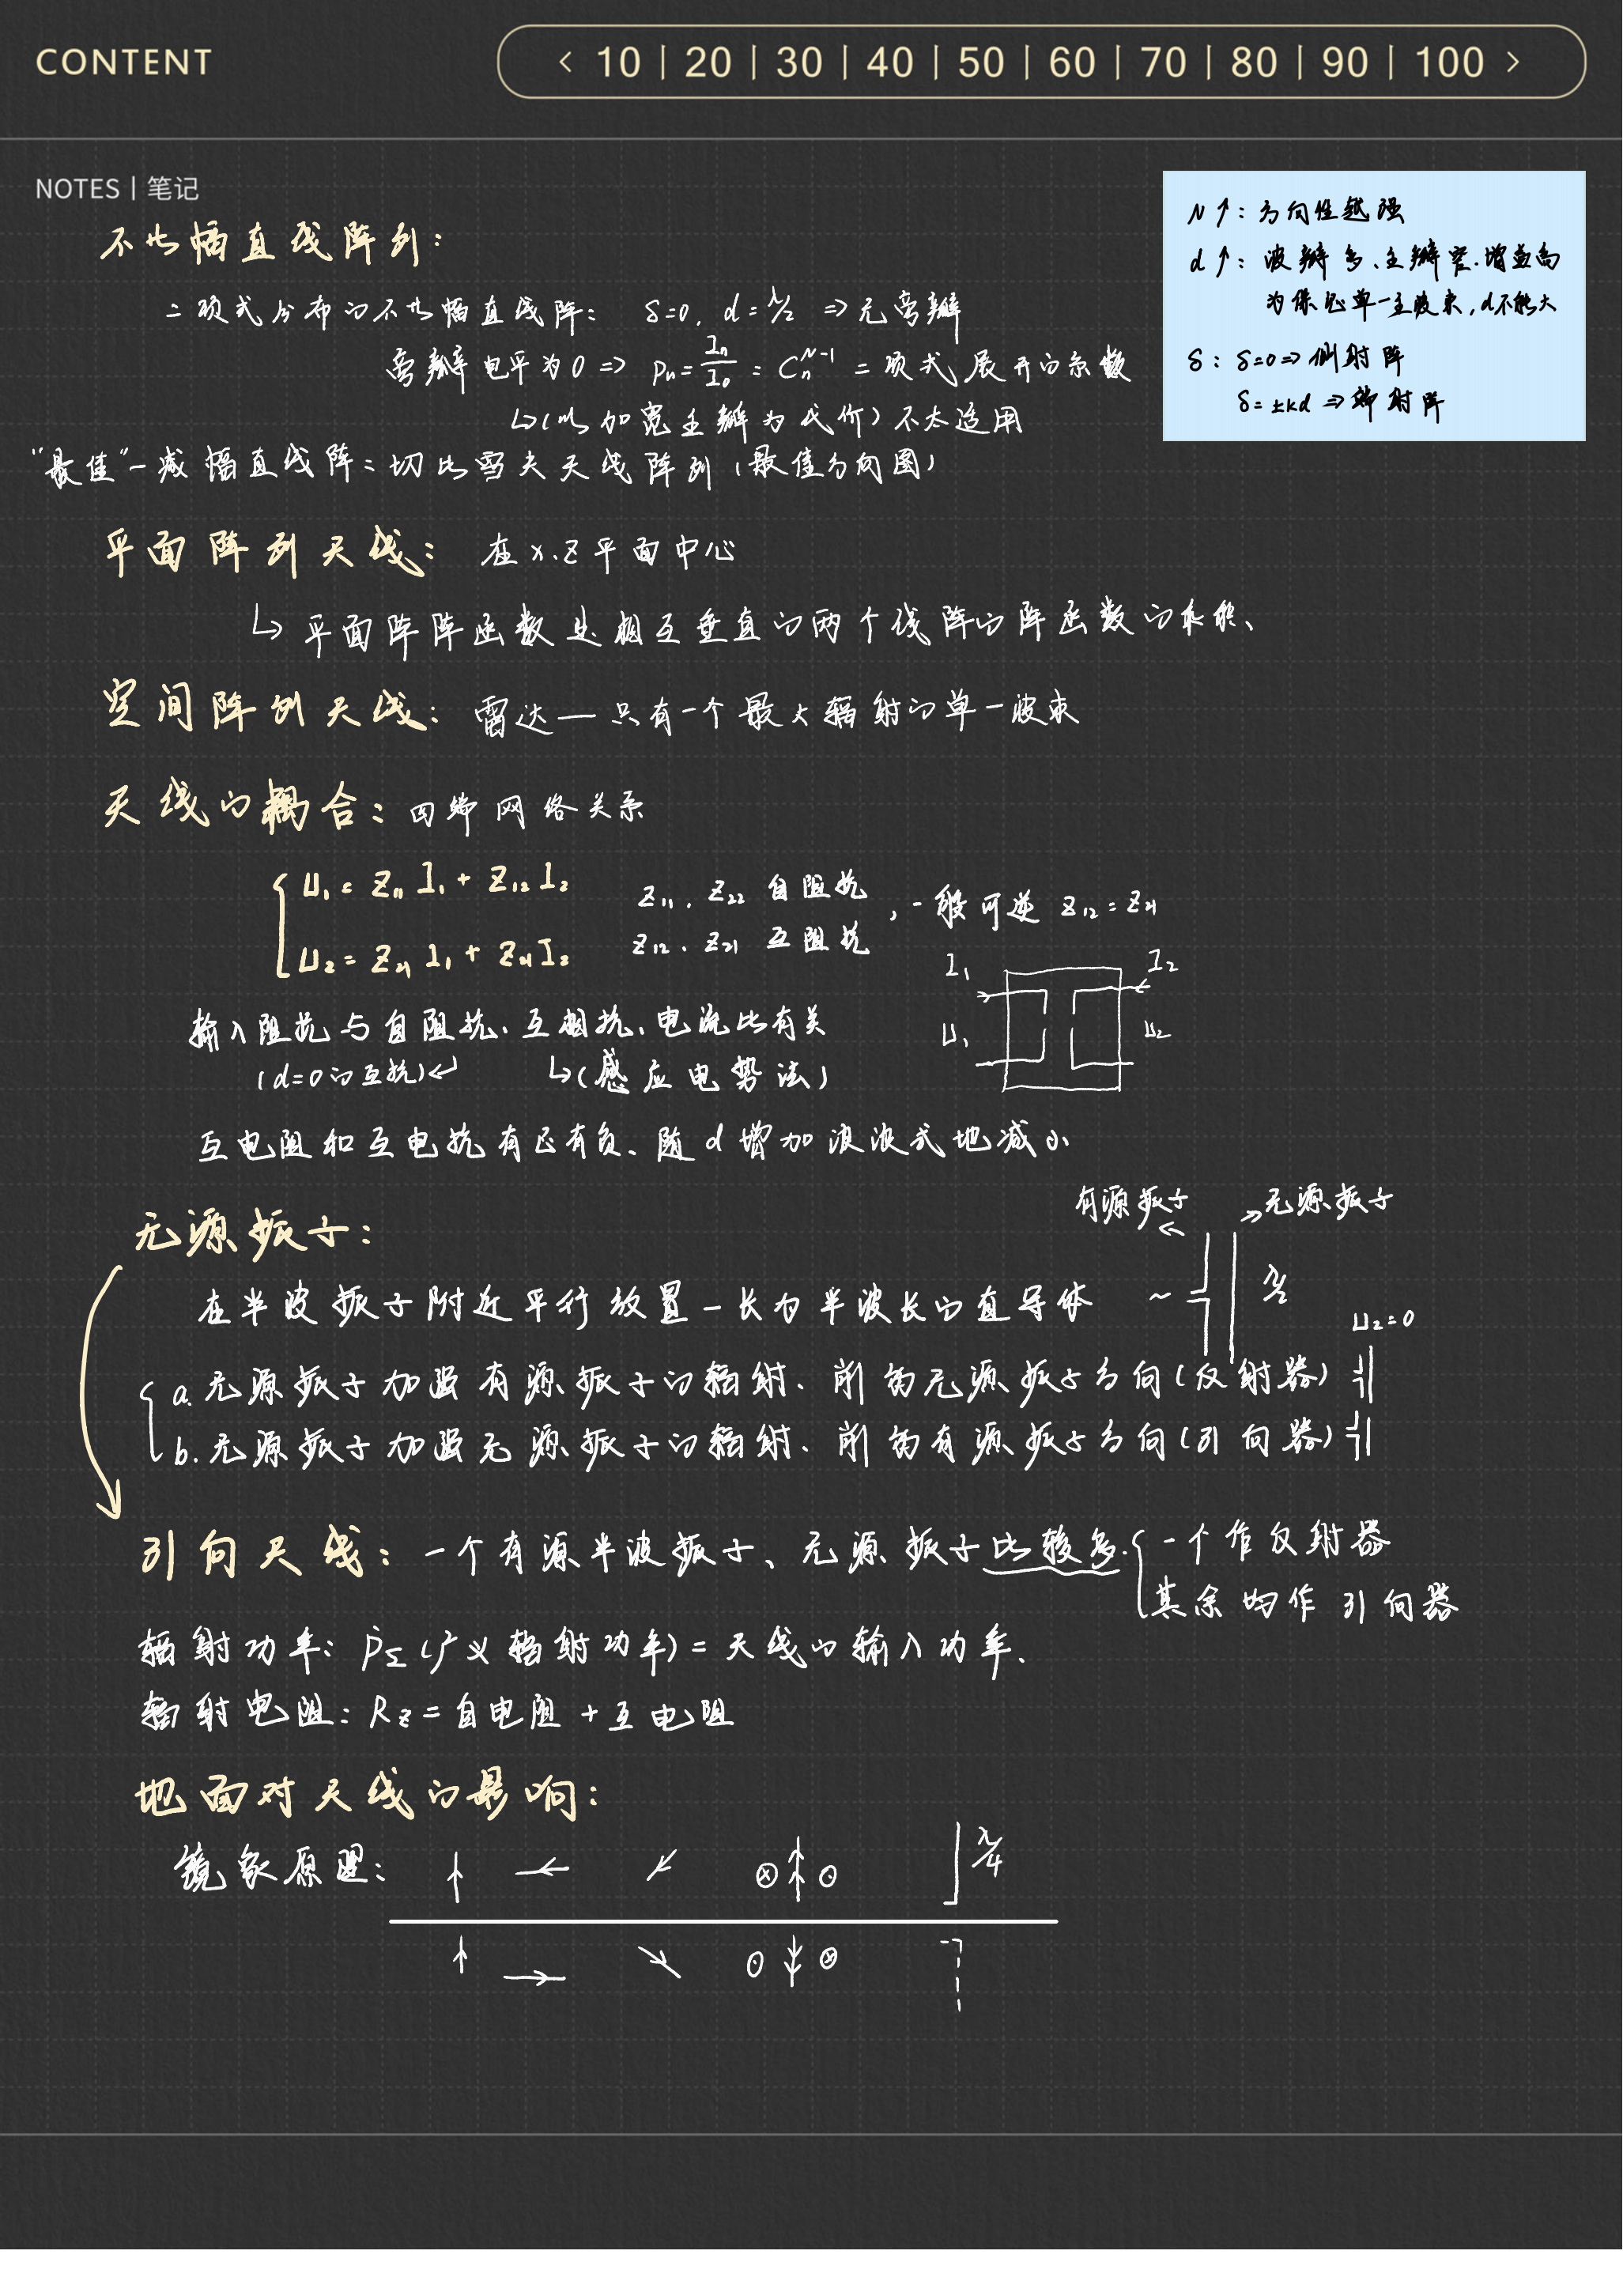 CONTENT
< 10 | 20 | 30 | 40 | 50 | 60 | 70 | 80 | 90 | 100 >
NOTES | 笔记
N↑: 方向性越强
d↑: 波瓣多、主瓣窄.增益高
为保证单一主波束,d不能大
δ: δ=0⇒侧射阵
δ=±kd⇒端射阵
不均幅直线阵列:
二项式分布的不均幅直线阵: δ=0, d=λ/2 ⇒无旁瓣
旁瓣电平为0⇒ Pn=In/I0=Cn^N-1 二项式展开的系数
↳(以加宽主瓣为代价)不太适用
"最佳"一减幅直线阵:切比雪夫天线阵列(最佳方向图)
平面阵列天线: 在x.z平面中心
↳平面阵阵函数是相互垂直的两个线阵的阵函数的乘积、
空间阵列天线: 雷达—只有一个最大辐射的单一波束
天线的耦合: 四端网络关系
U1=Z11I1+Z12I2
U2=Z21I1+Z21I2
Z11、Z22 自阻抗
Z12、Z21 互阻抗
,一般可逆 Z12=Z21
I1 I2
U1 U2
输入阻抗与自阻抗、互阻抗、电流比有关
(d=0的互抗)↩ ↳(感应电势法)
互电阻和互电抗有正有负、随d增加波浪式地减小
有源振子 无源振子
无源振子:
在半波振子附近平行放置一长为半波长的直导体
~ λ/2
U2=0
a.无源振子加强有源振子的辐射、削弱无源振子方向(反射器)
b.无源振子加强无源振子的辐射、削弱有源振子方向(引向器)
引向天线: 一个有源半波振子、无源振子比较多.
一个作反射器
其余均作引向器
辐射功率: PΣ(广义辐射功率)=天线的输入功率.
辐射电阻: Rz=自电阻+互电阻
地面对天线的影响:
镜象原理:
λ/4